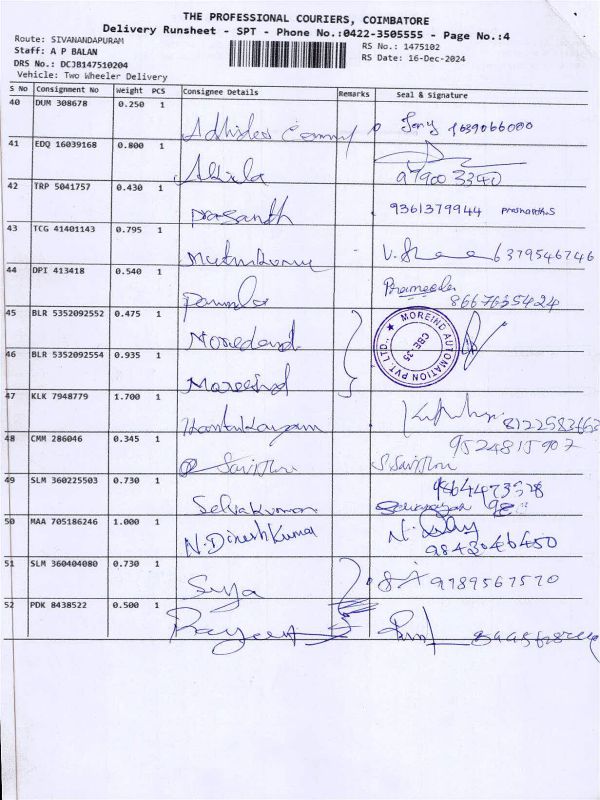 THE PROFESSIONAL COURIERS, COIMBATORE
Delivery Runsheet - SPT - Phone No.:0422-3505555 - Page No.:4
Route: SIVANANDAPURAM
RS No.: 1475102
Staff: A P BALAN
RS Date: 16-Dec-2024
DRS No.: DCJB147510204
Vehicle: Two Wheeler Delivery
S No Consignment No Weight PCS Consignee Details Remarks Seal & Signature
40 DUM 308678 0.250 1
41 EDQ 16039168 0.800 1
Akila 979003340
42 TRP 5041757 0.430 1
Prasanth 9361379944 Prashanth.S
43 TCG 41401143 0.795 1
Muthukumar 6379546746
44 DPI 413418 0.540 1
8667635424
45 BLR 5352092552 0.475 1
MOREIND AUTOMATION PVT. LTD., ★ CBE-35
46 BLR 5352092554 0.935 1
Moreind
47 KLK 7948779 1.700 1
48 CMM 286046 0.345 1
9524815907
Savithri S. Savithri
49 SLM 360225503 0.730 1
9864473528
Selvakumar
50 MAA 705186246 1.000 1
N. Dinesh Kumar
9843046450
51 SLM 360404080 0.730 1
Surya 9789567570
52 PDK 8438522 0.500 1